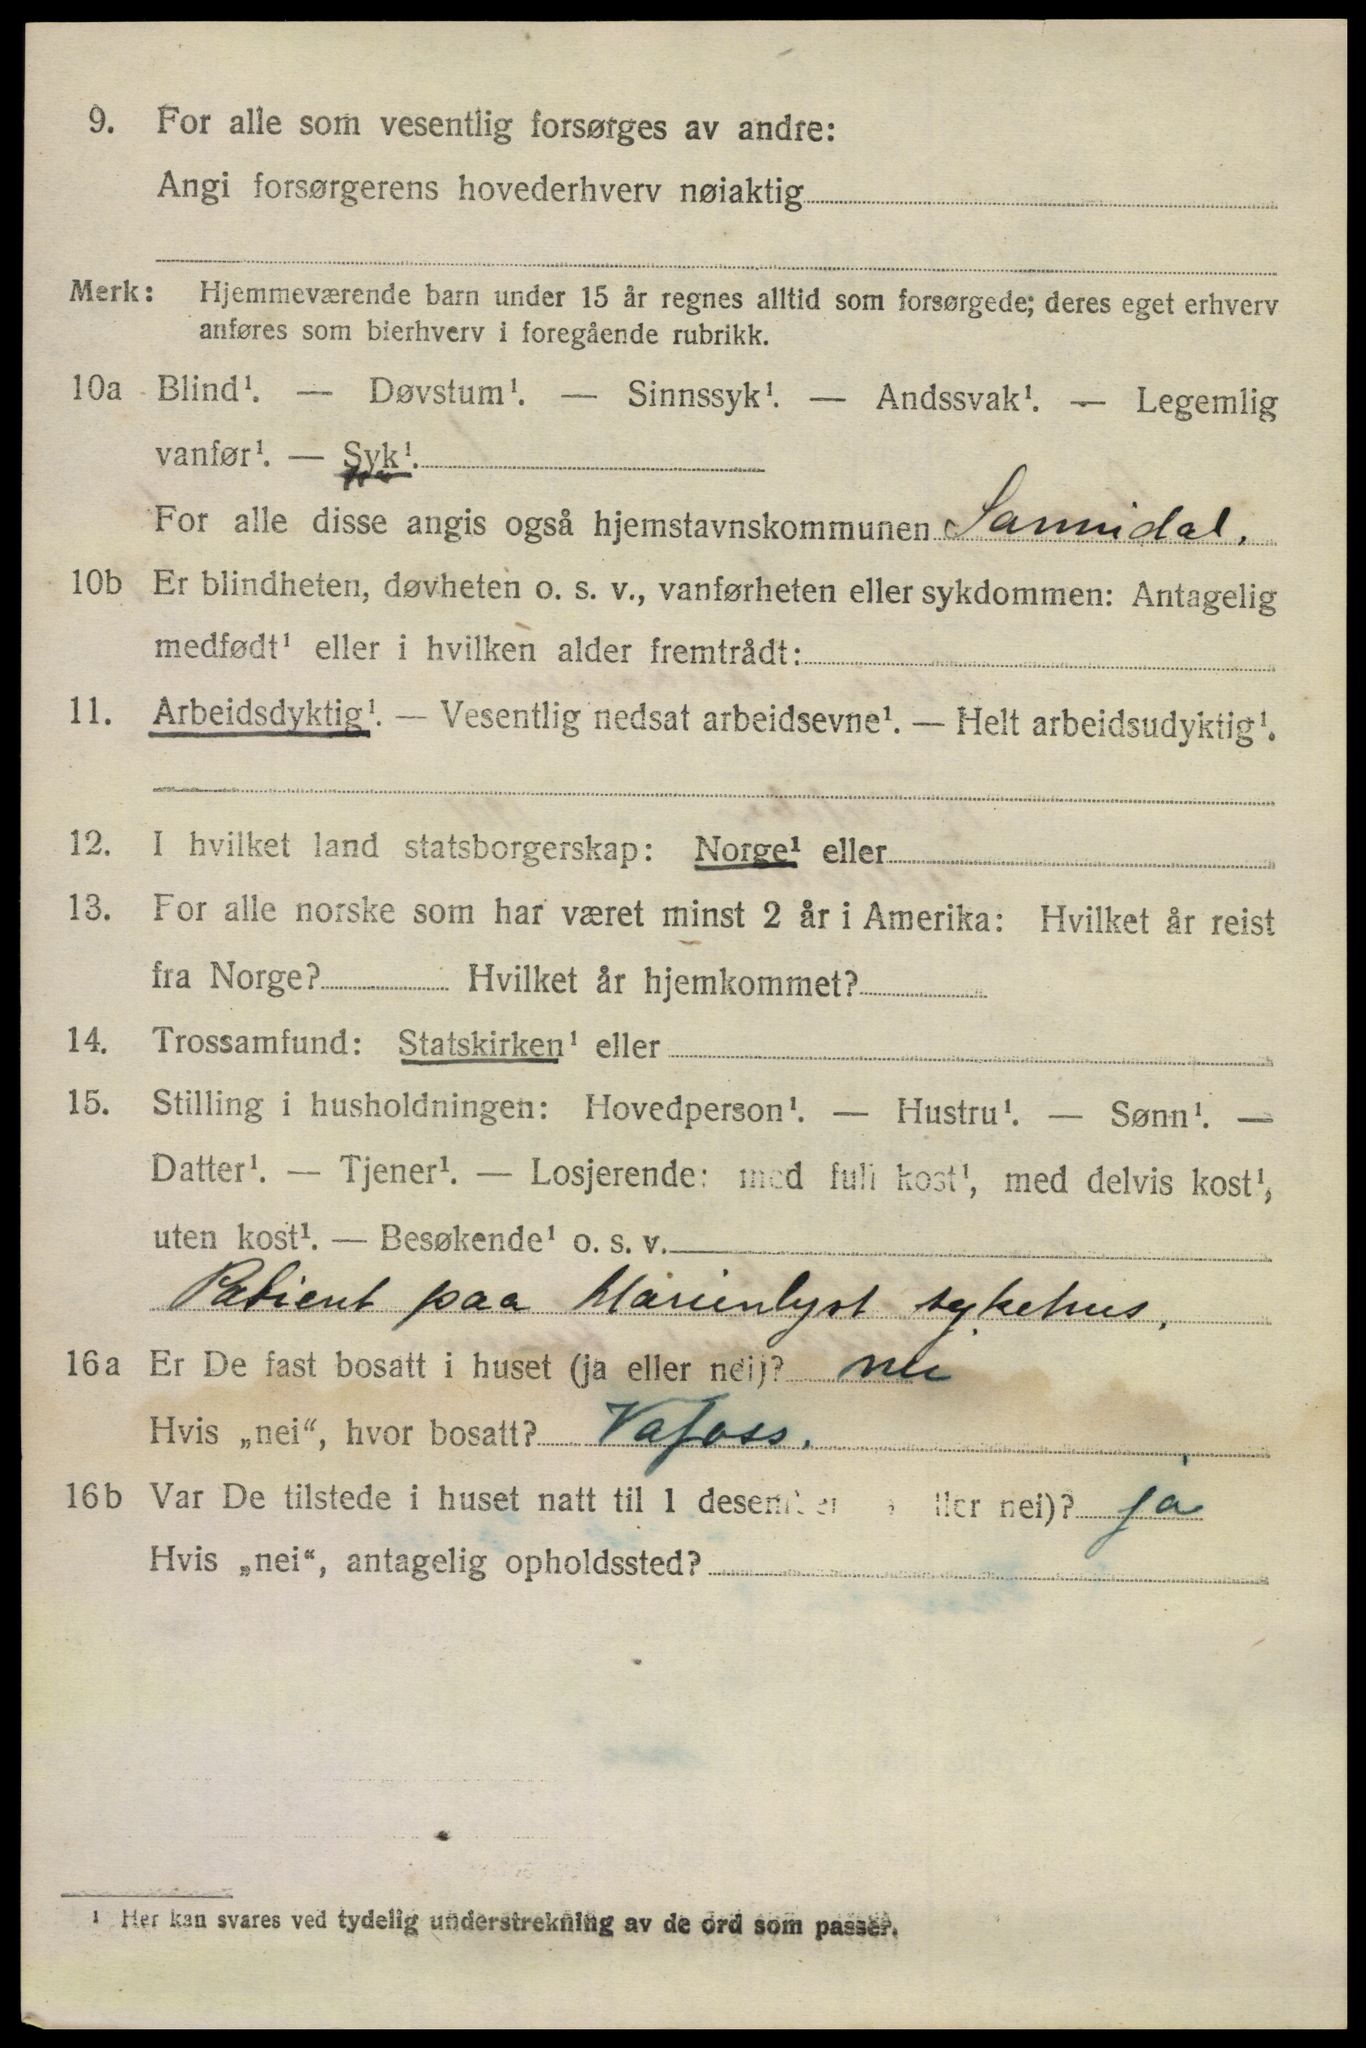 9. For alle som vesentlig forsørges av andre:
Angi forsørgerens hovederhverv nøiaktig
Merk: Hjemmeværende barn under 15 år regnes alltid som forsørgede; deres eget erhverv
anføres som bierhverv i foregående rubrikk.
10a Blind¹. — Døvstum¹. — Sinnssyk¹. — Andssvak¹. — Legemlig
vanfør¹. — Syk¹.
For alle disse angis også hjemstavnskommunen Sannidal.
10b Er blindheten, døvheten o. s. v., vanførheten eller sykdommen: Antagelig
medfødt¹ eller i hvilken alder fremtrådt:
11. Arbeidsdyktig¹. — Vesentlig nedsat arbeidsevne¹. — Helt arbeidsudyktig¹.
12. I hvilket land statsborgerskap: Norge¹ eller
13. For alle norske som har været minst 2 år i Amerika: Hvilket år reist
fra Norge? Hvilket år hjemkommet?
14. Trossamfund: Statskirken¹ eller
15. Stilling i husholdningen: Hovedperson¹. — Hustru¹. — Sønn¹. —
Datter¹. — Tjener¹. — Losjerende: med full kost¹, med delvis kost¹,
uten kost¹. — Besøkende¹ o. s. v.
Patient paa Marienlyst sykehus.
16a Er De fast bosatt i huset (ja eller nei)? nei
Hvis „nei“, hvor bosatt? Vafoss.
16b Var De tilstede i huset natt til 1 desember eller nei)? ja
Hvis „nei“, antagelig opholdssted?
¹ Her kan svares ved tydelig understrekning av de ord som passer.